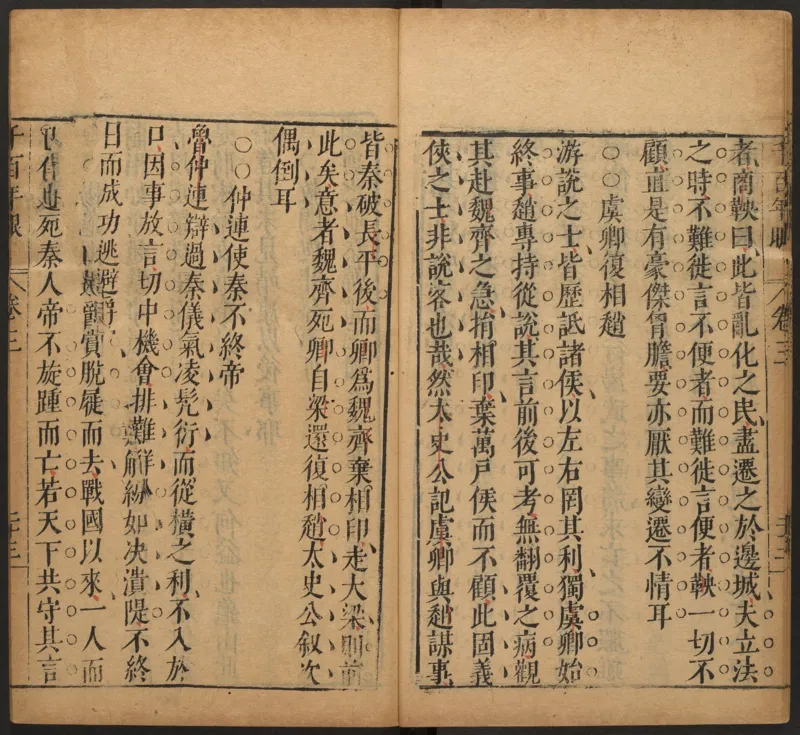 千百年眼 卷三
者商鞅曰此皆亂化之民盡遷之於邊城夫立法
之時不難徙言不便者而難徙言便者鞅一切不
顧直是有豪傑胷膽要亦厭其變遷不情耳
○○虞卿復相趙
游說之士皆歷詆諸侯以左右罔其利獨虞卿始
終事趙專持從說其言前後可考無翻覆之病觀
其赴魏齊之急捐相印棄萬戶侯而不顧此固義
俠之士非說客也哉然太史公記虞卿與趙謀事
皆秦破長平後而卿爲魏齊棄相印走大梁則前
此矣意者魏齊死卿自梁還復相趙太史公敘次
偶倒耳
○○仲連使秦不終帝
魯仲連辯過秦儀氣凌髠衍而從橫之利不入於
口因事放言切中機會排難解紛如決潰隄不終
日而成功逃避爵賞脫屣而去戰國以來一人而
已仲連死秦人帝不旋踵而亡若天下共守其言
千百年眼 卷三